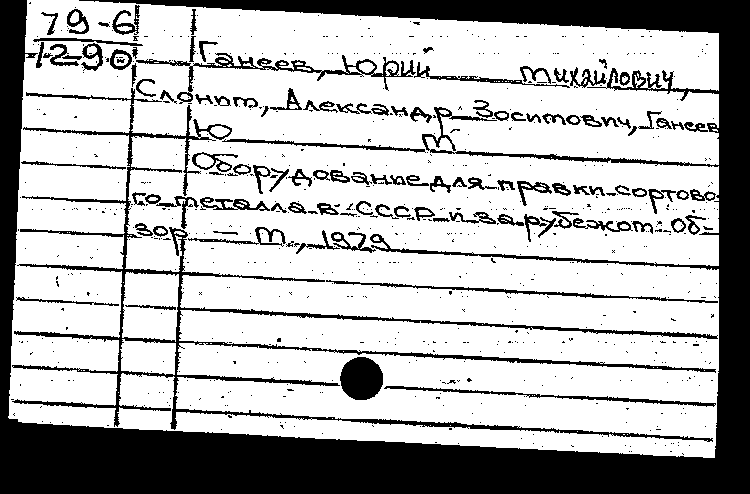 79-6
1290
Ганеев, Юрий Михайлович,
Слоним, Александр Зосимович, Ганеев
Ю М
Оборудование для правки сортово-
го металла в СССР и за рубежом: Об-
зор - М, 1979